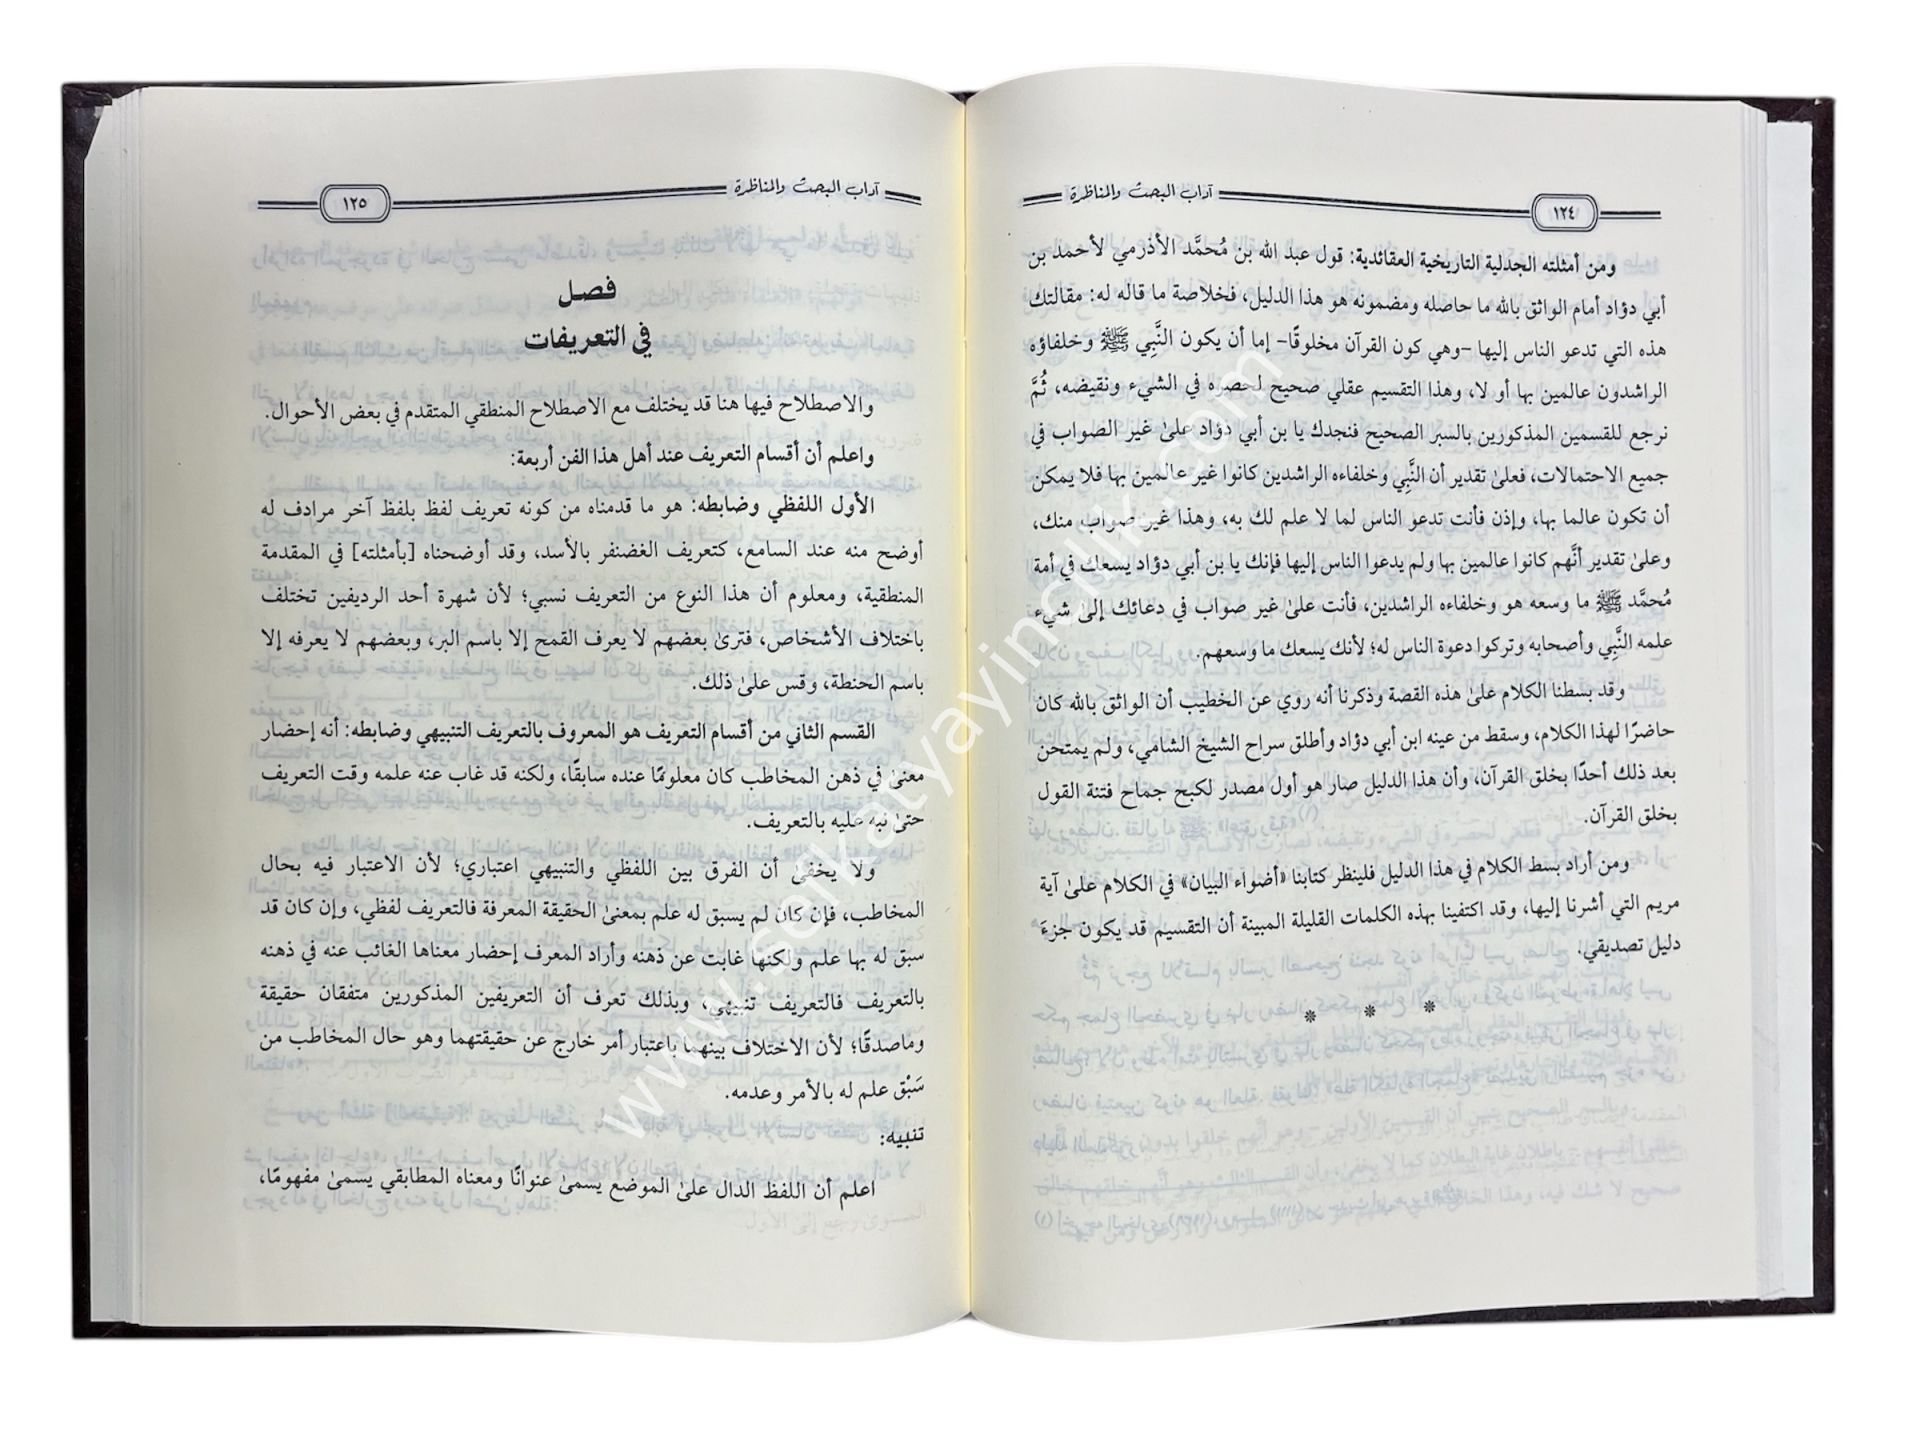 آداب البحث والمناظرة
١٢٤
ومن أمثلته الجدلية التاريخية العقائدية: قول عبد الله بن مُحمَّد الأذرمي لأحمد بن
أبي دؤاد أمام الواثق بالله ما حاصله ومضمونه هو هذا الدليل، فخلاصة ما قاله له: مقالتك
هذه التي تدعو الناس إليها -وهي كون القرآن مخلوقًا- إما أن يكون النَّبِي ﷺ وخلفاؤه
الراشدون عالمين بها أو لا، وهذا التقسيم عقلي صحيح لحصره في الشيء ونقيضه، ثُمَّ
نرجع للقسمين المذكورين بالسبر الصحيح فنجدك يا بن أبي دؤاد علىٰ غير الصواب في
جميع الاحتمالات، فعلىٰ تقدير أن النَّبِي وخلفاءه الراشدين كانوا غير عالمين بها فلا يمكن
أن تكون عالما بها، وإذن فأنت تدعو الناس لما لا علم لك به، وهذا غير صواب منك،
وعلىٰ تقدير أنَّهم كانوا عالمين بها ولم يدعوا الناس إليها فإنك يا بن أبي دؤاد يسعك في أمة
مُحمَّد ﷺ ما وسعه هو وخلفاءه الراشدين، فأنت علىٰ غير صواب في دعائك إلىٰ شيء
علمه النَّبِي وأصحابه وتركوا دعوة الناس له؛ لأنك يسعك ما وسعهم.
وقد بسطنا الكلام علىٰ هذه القصة وذكرنا أنه روي عن الخطيب أن الواثق بالله كان
حاضرًا لهذا الكلام، وسقط من عينه ابن أبي دؤاد وأطلق سراح الشيخ الشامي، ولم يمتحن
بعد ذلك أحدًا بخلق القرآن، وأن هذا الدليل صار هو أول مصدر لكبح جماح فتنة القول
بخلق القرآن.
ومن أراد بسط الكلام في هذا الدليل فلينظر كتابنا «أضواء البيان» في الكلام علىٰ آية
مريم التي أشرنا إليها، وقد اكتفينا بهذه الكلمات القليلة المبينة أن التقسيم قد يكون جزءَ
دليل تصديقي.
* * *
آداب البحث والمناظرة
١٢٥
فصل
في التعريفات
والاصطلاح فيها هنا قد يختلف مع الاصطلاح المنطقي المتقدم في بعض الأحوال.
واعلم أن أقسام التعريف عند أهل هذا الفن أربعة:
الأول اللفظي وضابطه: هو ما قدمناه من كونه تعريف لفظ بلفظ آخر مرادف له
أوضح منه عند السامع، كتعريف الغضنفر بالأسد، وقد أوضحناه [بأمثلته] في المقدمة
المنطقية، ومعلوم أن هذا النوع من التعريف نسبي؛ لأن شهرة أحد الرديفين تختلف
باختلاف الأشخاص، فترىٰ بعضهم لا يعرف القمح إلا باسم البر، وبعضهم لا يعرفه إلا
باسم الحنطة، وقس علىٰ ذلك.
القسم الثاني من أقسام التعريف هو المعروف بالتعريف التنبيهي وضابطه: أنه إحضار
معنىٰ في ذهن المخاطب كان معلومًا عنده سابقًا، ولكنه قد غاب عنه علمه وقت التعريف
حتىٰ نبه عليه بالتعريف.
ولا يخفىٰ أن الفرق بين اللفظي والتنبيهي اعتباري؛ لأن الاعتبار فيه بحال
المخاطب، فإن كان لم يسبق له علم بمعنىٰ الحقيقة المعرفة فالتعريف لفظي، وإن كان قد
سبق له بها علم ولكنها غابت عن ذهنه وأراد المعرف إحضار معناها الغائب عنه في ذهنه
بالتعريف فالتعريف تنبيهي، وبذلك تعرف أن التعريفين المذكورين متفقان حقيقة
وماصدقًا؛ لأن الاختلاف بينهما باعتبار أمر خارج عن حقيقتهما وهو حال المخاطب من
سَبْق علم له بالأمر وعدمه.
تنبيه:
اعلم أن اللفظ الدال علىٰ الموضع يسمىٰ عنوانًا ومعناه المطابقي يسمىٰ مفهومًا،
www.selkatyayincilik.com